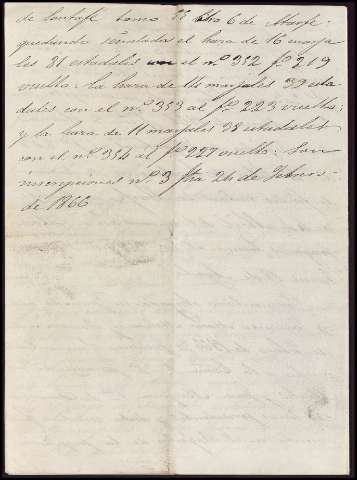 de Santafé tomo 15 libro 6 de Atarfe
quedando señalada el haza de 16 marja
les 81 estadales en el n.º 352 fº 219
vuelto: la haza de 14 marjales 39 esta
dales con el n.º 353 al fº 223 vuelto;
y la haza de 11 marjales 38 estadales
con el n.º 354 al fº 227 vuelto: Son
inscripciones n.º 3 fha 24 de
de 1866